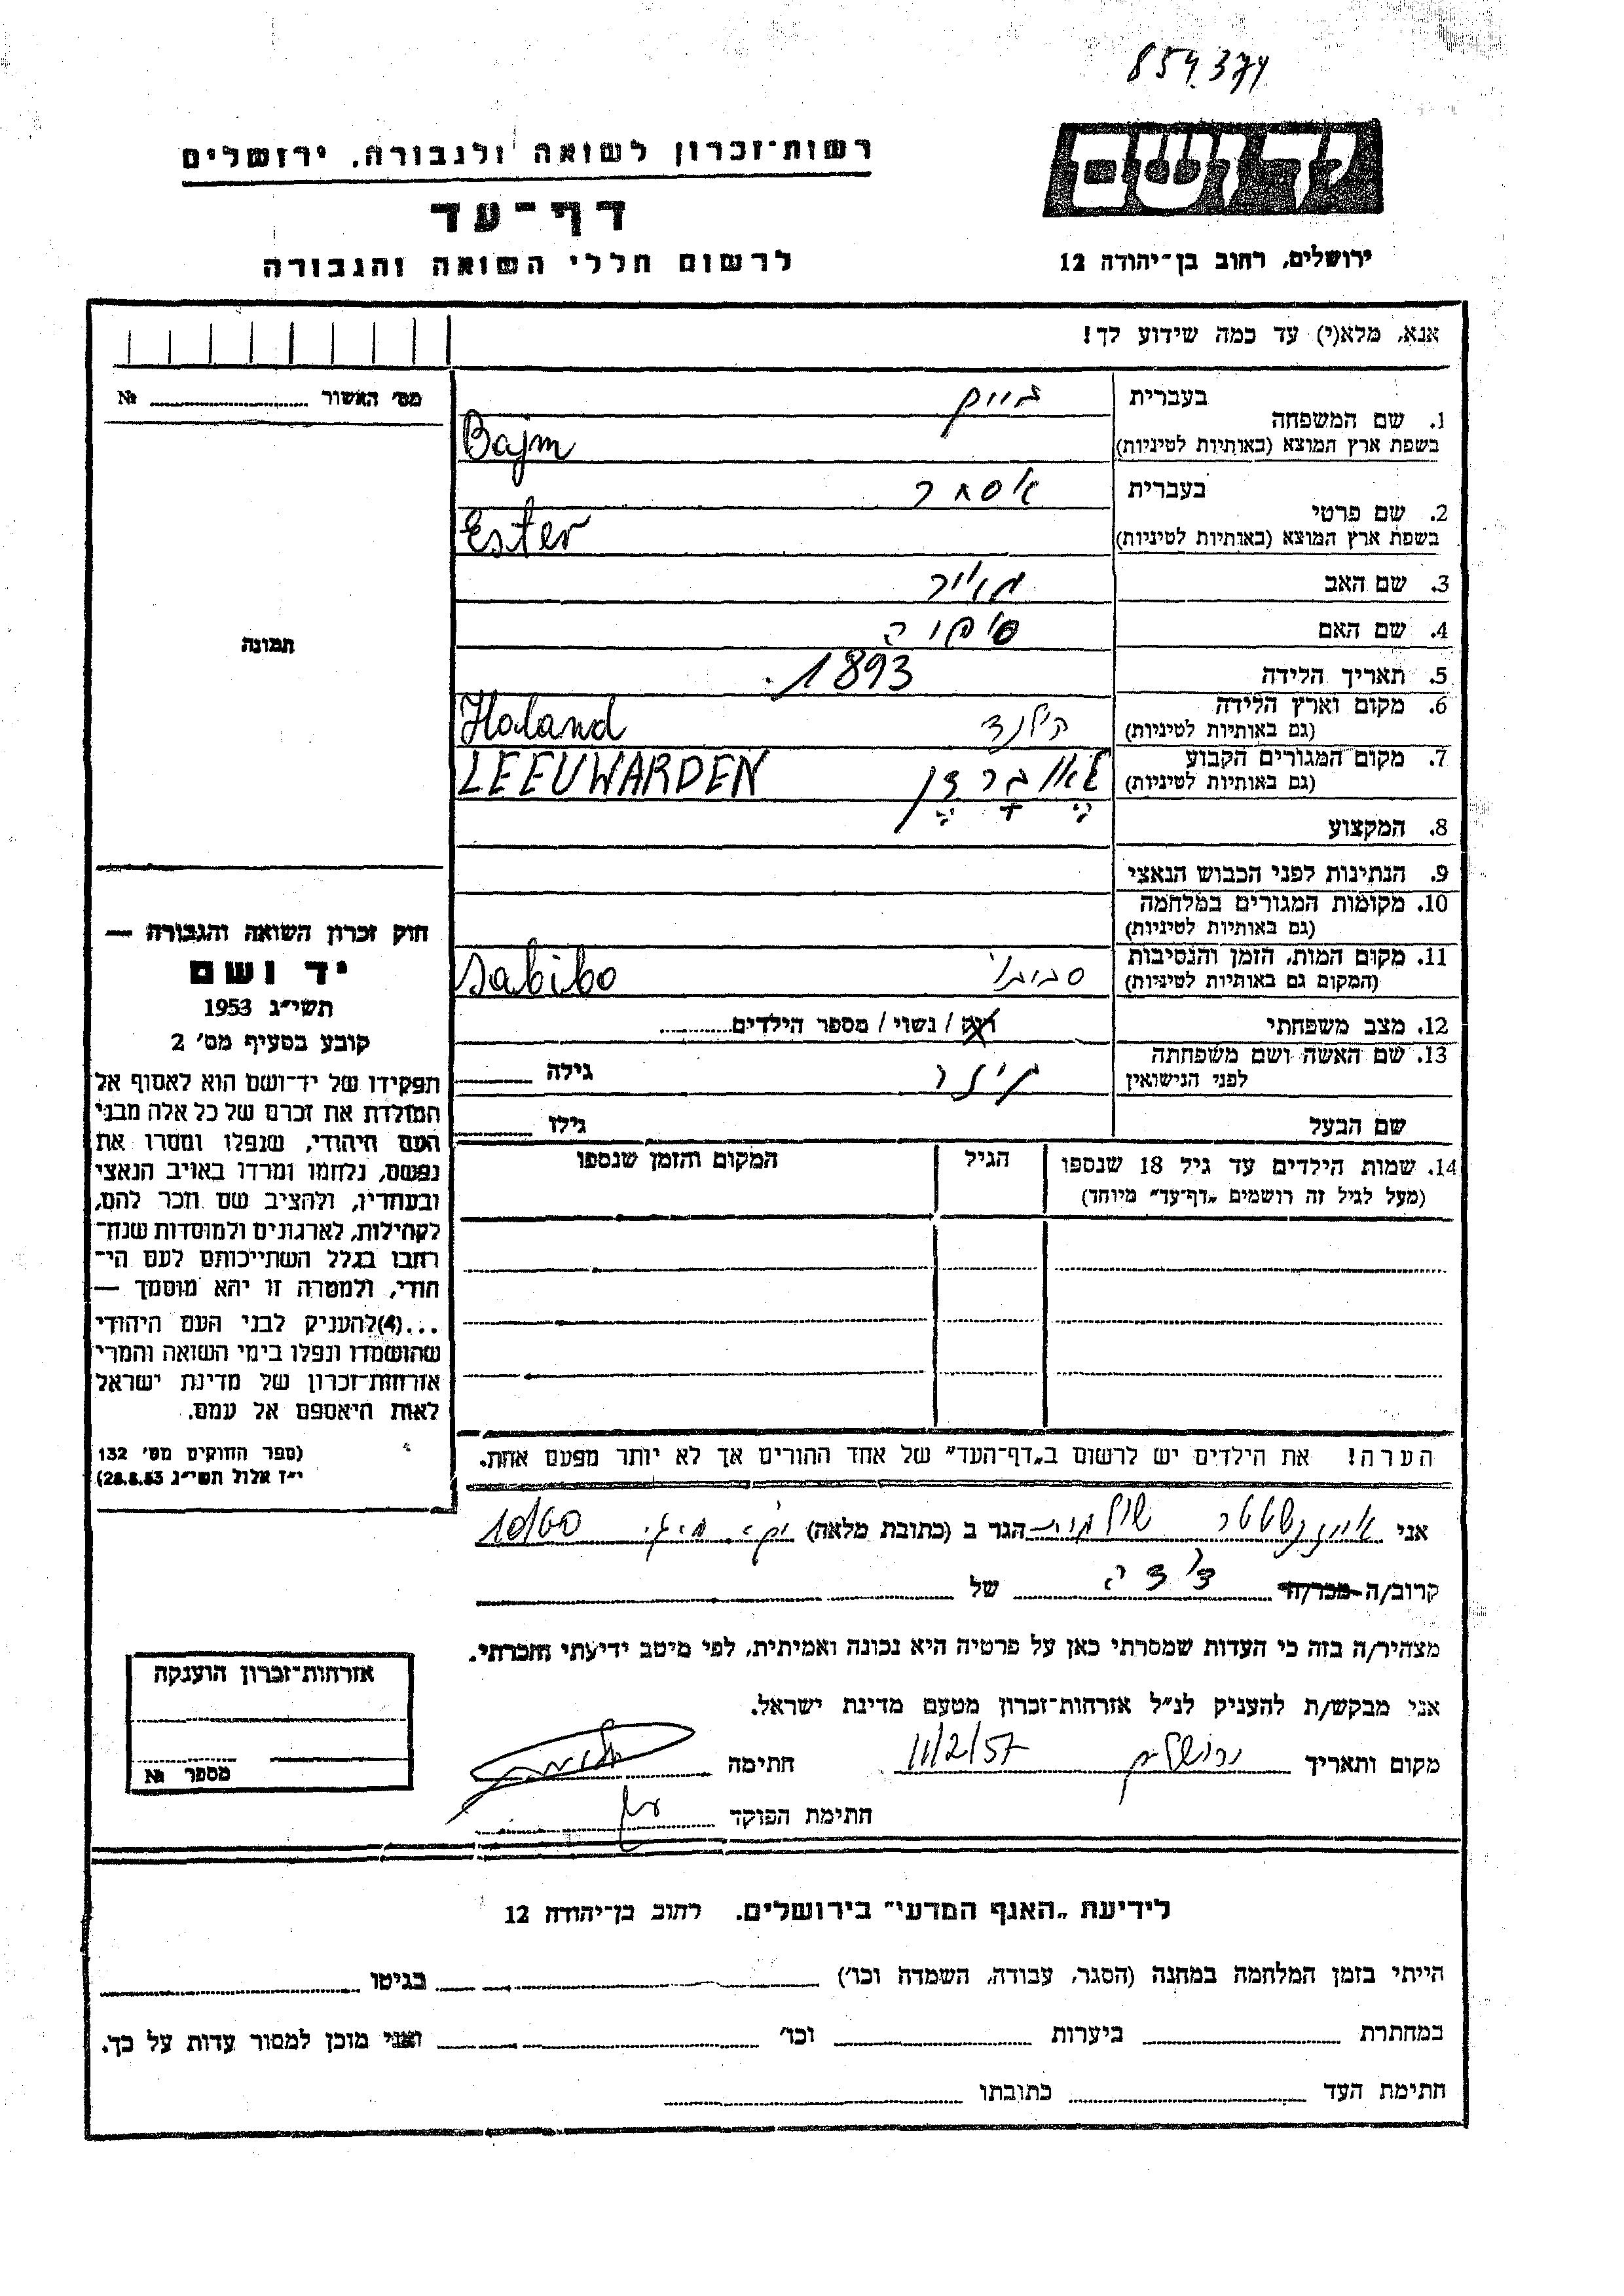 854374
רשות־זכרון לשואה ולגבורה, ירושלים
ידושם
דף־עד
ירושלים, רחוב בן־יהודה 12
לרשום חללי השואה והגבורה
אנא, מלא(י) עד כמה שידוע לך!
מס׳ האשור № 
1. שם המשפחה
בעברית
בשפת ארץ המוצא (באותיות לטיניות)
Bajm
2. שם פרטי
בעברית אסתר
בשפת ארץ המוצא (באותיות לטיניות)
Ester
3. שם האב מאיר
4. שם האם
5. תאריך הלידה 1893
6. מקום וארץ הלידה
(גם באותיות לטיניות)
הולנד Holand
7. מקום המגורים הקבוע
(גם באותיות לטיניות)
LEEUWARDEN
8. המקצוע
9. הנתינות לפני הכבוש הנאצי
10. מקומות המגורים במלחמה
(גם באותיות לטיניות)
11. מקום המות, הזמן והנסיבות
(המקום גם באותיות לטיניות)
סביבו Sabibo
12. מצב משפחתי
רוק / נשוי / מספר הילדים
13. שם האשה ושם משפחתה
לפני הנישואין
גילה
שם הבעל גילו
14. שמות הילדים עד גיל 18 שנספו
(מעל לגיל זה רושמים „דף־עד״ מיוחד)
הגיל
המקום והזמן שנספו
תמונה
חוק זכרון השואה והגבורה —
יד ושם
תשי״ג 1953
קובע בסעיף מס׳ 2
תפקידו של יד־ושם הוא לאסוף אל
המולדת את זכרם של כל אלה מבני
העם היהודי, שנפלו ומסרו את
נפשם, נלחמו ומרדו באויב הנאצי
ובעוזריו, ולהציב שם וזכר להם,
לקהילות, לארגונים ולמוסדות שנח־
רבו בגלל השתייכותם לעם הי־
הודי, ולמטרה זו יהא מוסמך —
...(4)להעניק לבני העם היהודי
שהושמדו ונפלו בימי השואה והמרי
אזרחות־זכרון של מדינת ישראל
לאות היאספם אל עמם.
(ספר החוקים מס׳ 132
י״ז אלול תשי״ג 28.8.53)
הערה! את הילדים יש לרשום ב„דף־העד״ של אחד ההורים אך לא יותר מפעם אחת.
אני הגר ב (כתובת מלאה) 10/60
קרוב/ה מכר/ה של
מצהיר/ה בזה כי העדות שמסרתי כאן על פרטיה היא נכונה ואמיתית, לפי מיטב ידיעתי והכרתי.
אני מבקש/ת להעניק לנ״ל אזרחות־זכרון מטעם מדינת ישראל.
מקום ותאריך ירושלים 11/2/57 חתימה
חתימת הפוקד
אזרחות־זכרון הוענקה
מספר №
לידיעת „האגף המדעי״ בירושלים. רחוב בן־יהודה 12
הייתי בזמן המלחמה במחנה (הסגר, עבודה, השמדה וכו׳) בגיטו
במחתרת ביערות וכו׳ ואני מוכן למסור עדות על כך.
חתימת העד כתובתו